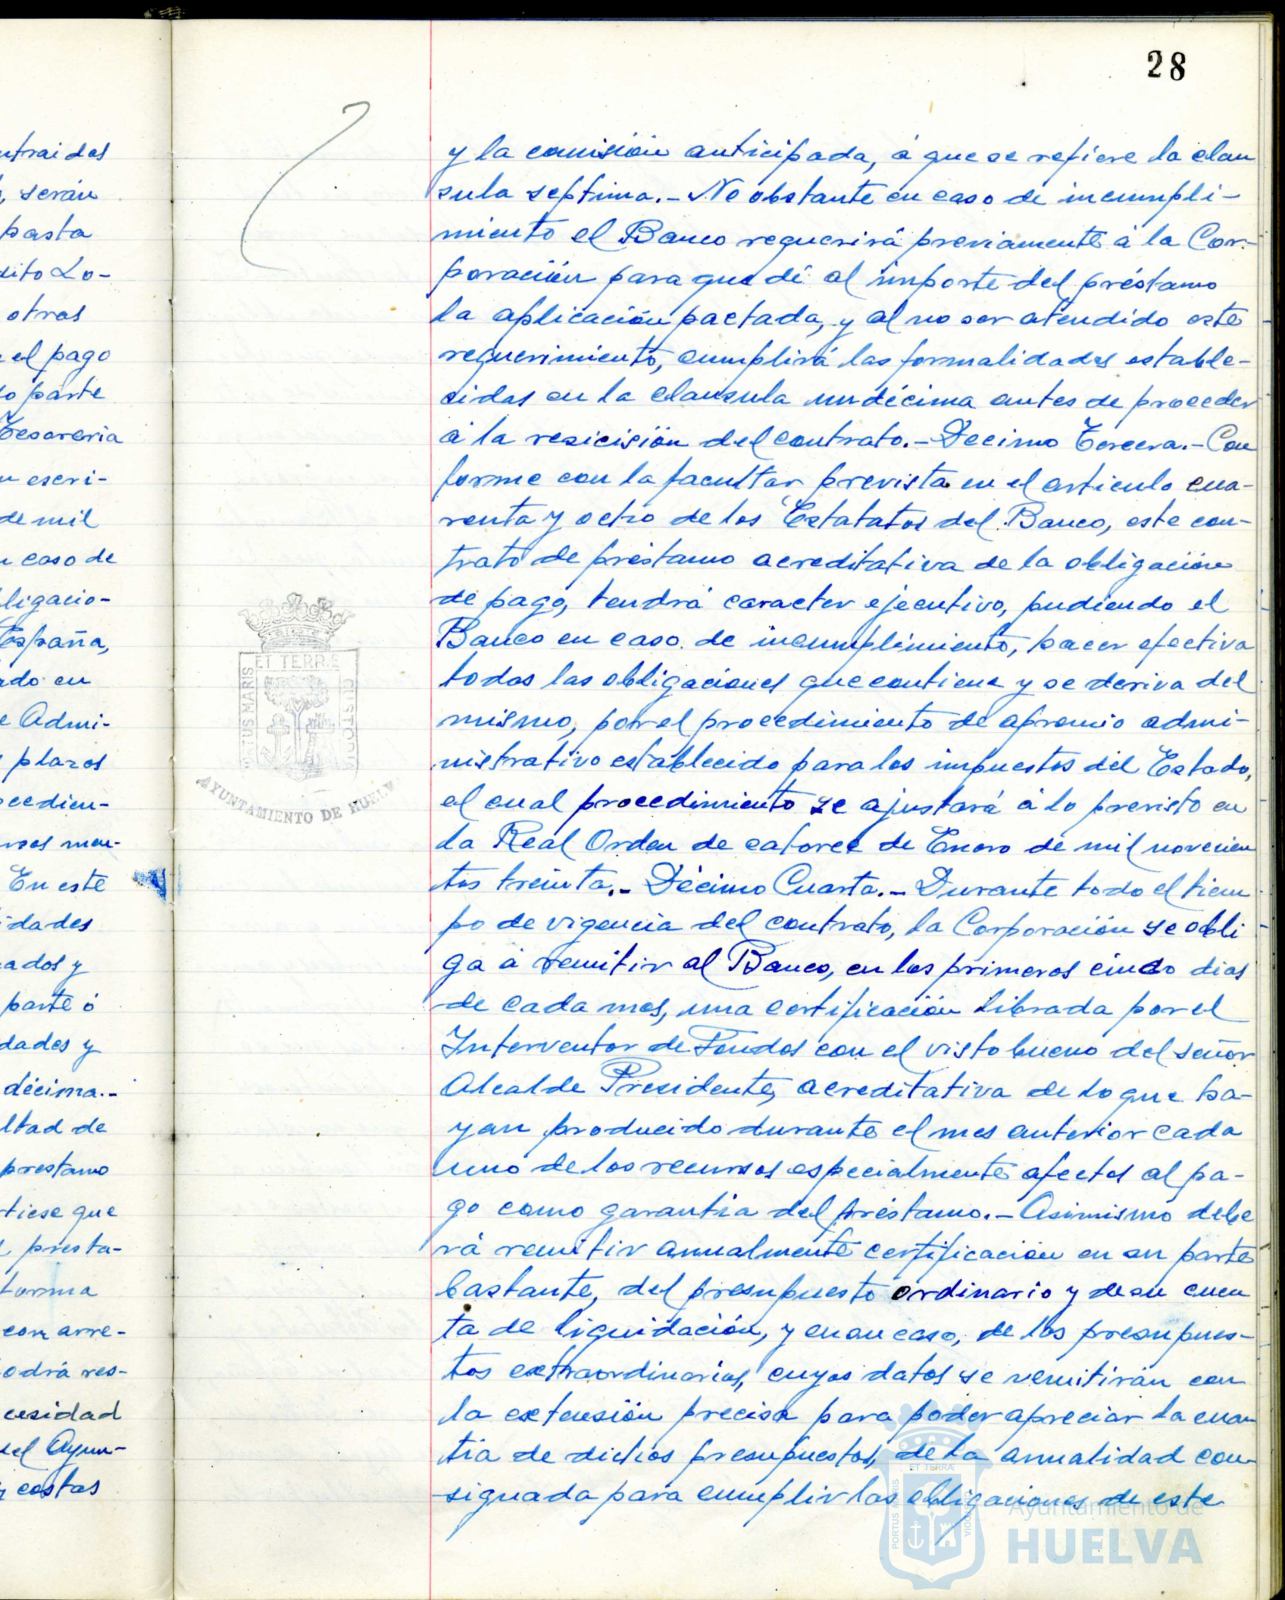 28
ntraidos
, serán
pasta
dito Lo-
otras
el pago
o parte
Tesoreria
n escri-
de mil
n caso de
ligacio-
España,
ado en
e Admi-
plazos
cedien-
rsos men-
En este
idades
ados y
parte ó
dades y
décima.-
ltad de
prestamo
tiese que
presta-
forma
con arre-
odrá res-
cesidad
del Ayun-
costas
y la comisión anticipada, á que se refiere la clau
sula septima.- No obstante en caso de incumpli-
miento el Banco requerirá previamente á la Cor-
poración para que dé al importe del préstamo
la aplicación pactada, y al no ser atendido este
requerimiento, cumplirá las formalidades estable-
cidas en la clausula undécima antes de proceder
á la resicisión del contrato.- Decimo Tercera.- Con
forme con la facultar prevista en el articulo cua-
renta y octro de los Estatatos del Banco, este con-
trato de préstamo acreditativa de la obligación
de pago, tendrá caracter ejecutivo, pudiendo el
Banco en caso de incumplimiento, hacer efectiva
todas las obligaciones que contiene y se deriva del
mismo, por el procedimiento de apremio admi-
nistrativo establecido para los impuestos del Estado,
el cual procedimiento se ajustará á lo previsto en
la Real Orden de catorce de Enero de mil novecien
tos treinta.- Décimo Cuarta.- Durante todo el tiem
po de vigencia del contrato, la Corporación se obli
ga á remitir al Banco, en los primeros cinco dias
de cada mes, una certificación librada por el
Interventor de Fondos con el visto bueno del señor
Alcalde Presidente, acreditativa de lo que ha-
yan producido durante el mes anterior cada
uno de los recursos especialmente afectos al pa-
go como garantia del préstamo.- Asimismo debe
rá remitir anualmente certificación en su parte
bastante, del presupuesto ordinario y de su cuen
ta de liquidación, y en su caso, de los presupues-
tos extraordinarios, cuyos datos se remitirán con
la extensión precisa para poder apreciar la cuan
tia de dichos presupuestos, de la anualidad con-
signada para cumplir las obligaciones de este
ET TERRE
PORTUS MARIS
CUSTODIA
AYUNTAMIENTO DE HUELV
ET TERRE
PORTUS MARIS
CUSTODIA
Ayuntamiento de
HUELVA